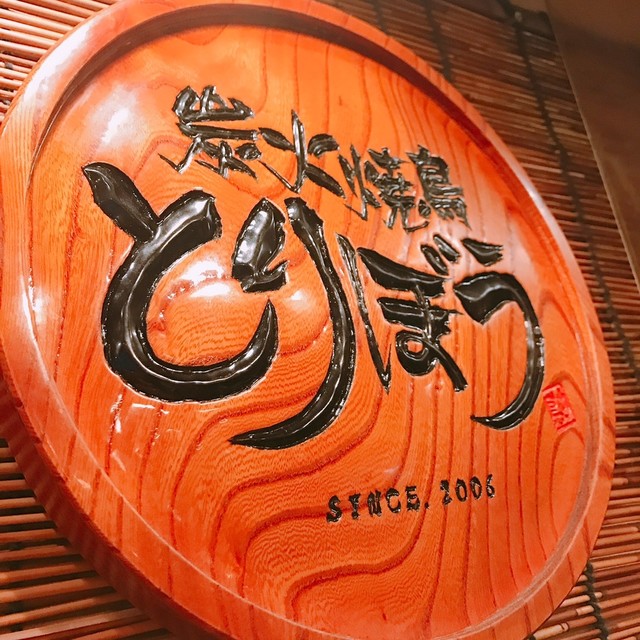 炭火焼鳥
とりぼう
SINCE. 2006